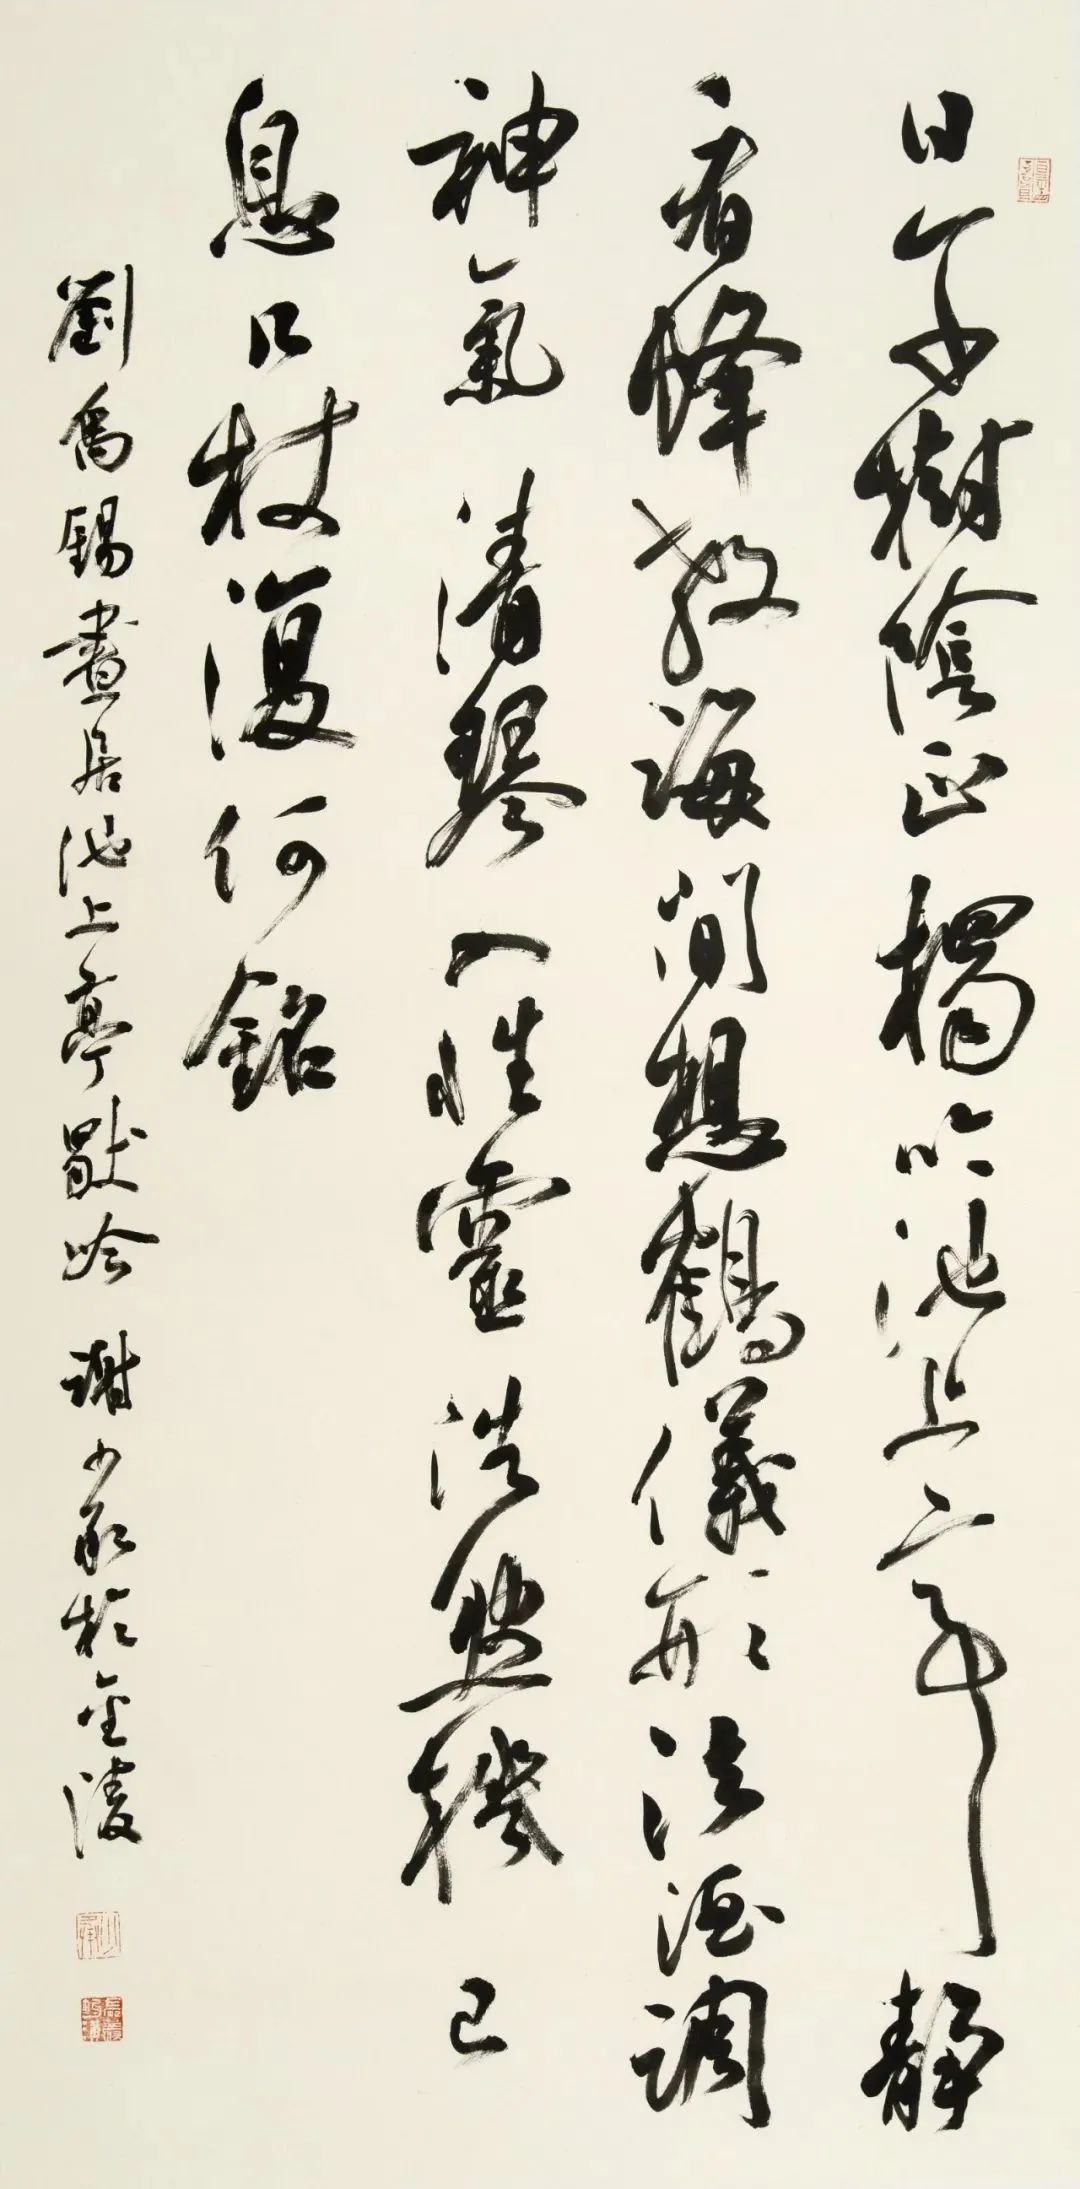 日午樹陰正獨吟池上亭靜
看蜂教誨閒想鶴儀形法酒調
神氣清琴入性靈浩然機已
息几杖復何銘
劉禹錫晝居池上亭獨吟 謝少承於金陵